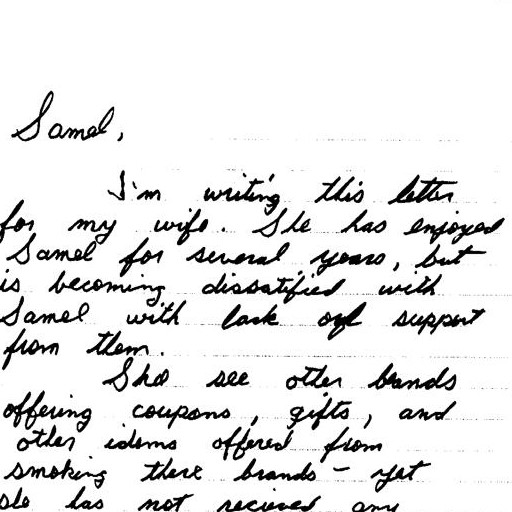 Samel,
I'm writing this letter
for my wife. She has enjoyed
Samel for several years, but
is becoming dissatified with
Samel with lack of support
from them.
She see other brands
offering coupons, gifts, and
other idems offered from
smoking there brands - yet
she has not recieved any